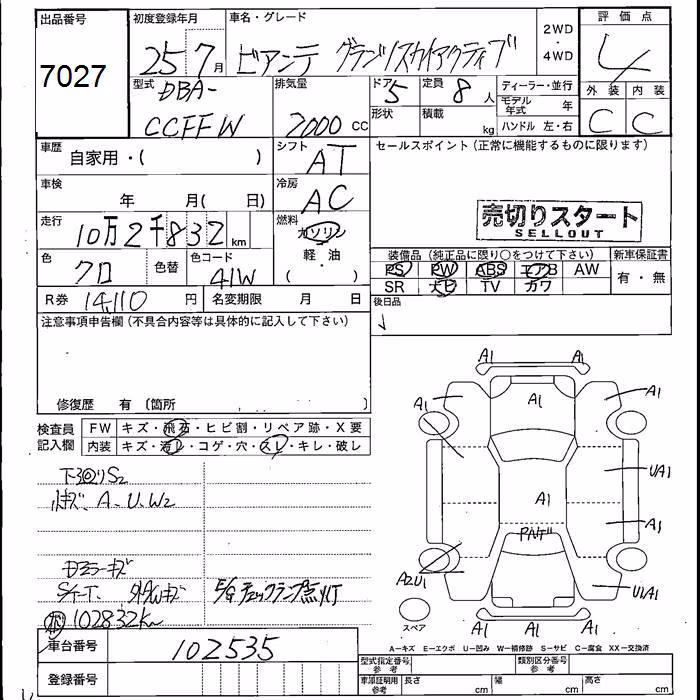 出品番号
7027
初度登録年月
25 7月
車名・グレード
ビアンテ グランツ スカイアクティブ
2WD
・
4WD
評価点
4
型式
DBA-
CCFFW
排気量
2000 cc
ドア
5
定員
8人
形状
積載
kg
ディーラー・並行
モデル年式 年
ハンドル 左・右
外装
C
内装
C
車歴
自家用・( )
シフト
AT
セールスポイント(正常に機能するものに限ります)
車検
年 月( 日)
冷房
AC
売切りスタート
SELLOUT
走行
10万2千832km
燃料
ガソリン
・
軽・油
( )
色
クロ
色替
色コード
41W
装備品(純正品に限り○をつけて下さい)
PS PW ABS エアB AW
SR ナビ TV カワ
新車保証書
有・無
R券 14,110 円
名変期限 月 日
後日品
注意事項申告欄(不具合内容等は具体的に記入して下さい)
修復歴 有〔箇所 〕
検査員
記入欄
FW キズ・飛石・ヒビ割・リペア跡・X要
内装 キズ・汚レ・コゲ・穴・スレ・キレ・破レ
下回りS2
小キズ、A、U、W2
ドアミラーキズ
E/Gチェックランプ点灯
102832km
車台番号
102535
登録番号
A1
A1
A1
A1
A1
A1
UA1
A1
A2U1
U1A1
A1
A1
A1
スペア
A―キズ E―エクボ U―凹み W―補修跡 S―サビ C―腐食 XX―交換済
型式指定番号
参考
類別区分番号
参考
車庫証明用
参考
長さ cm
幅 cm
高さ cm